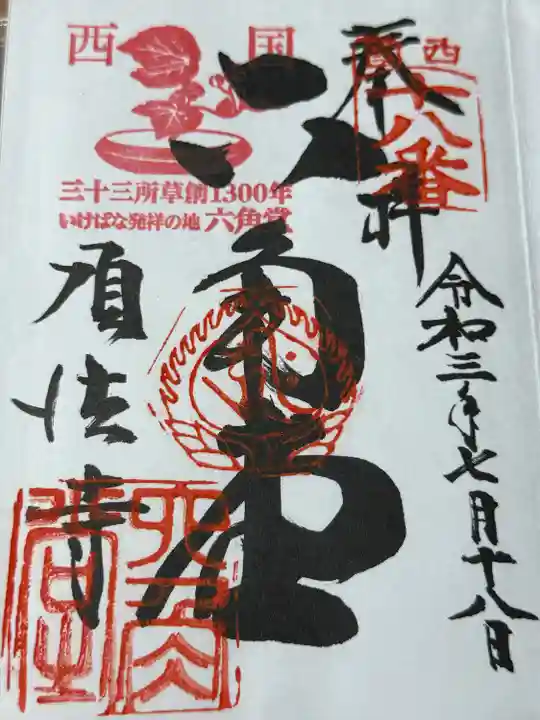 西国
三十三所草創1300年
いけばな発祥の地 六角堂
西国
十八番
奉拝
令和三年七月十八日
六角堂
頂法寺